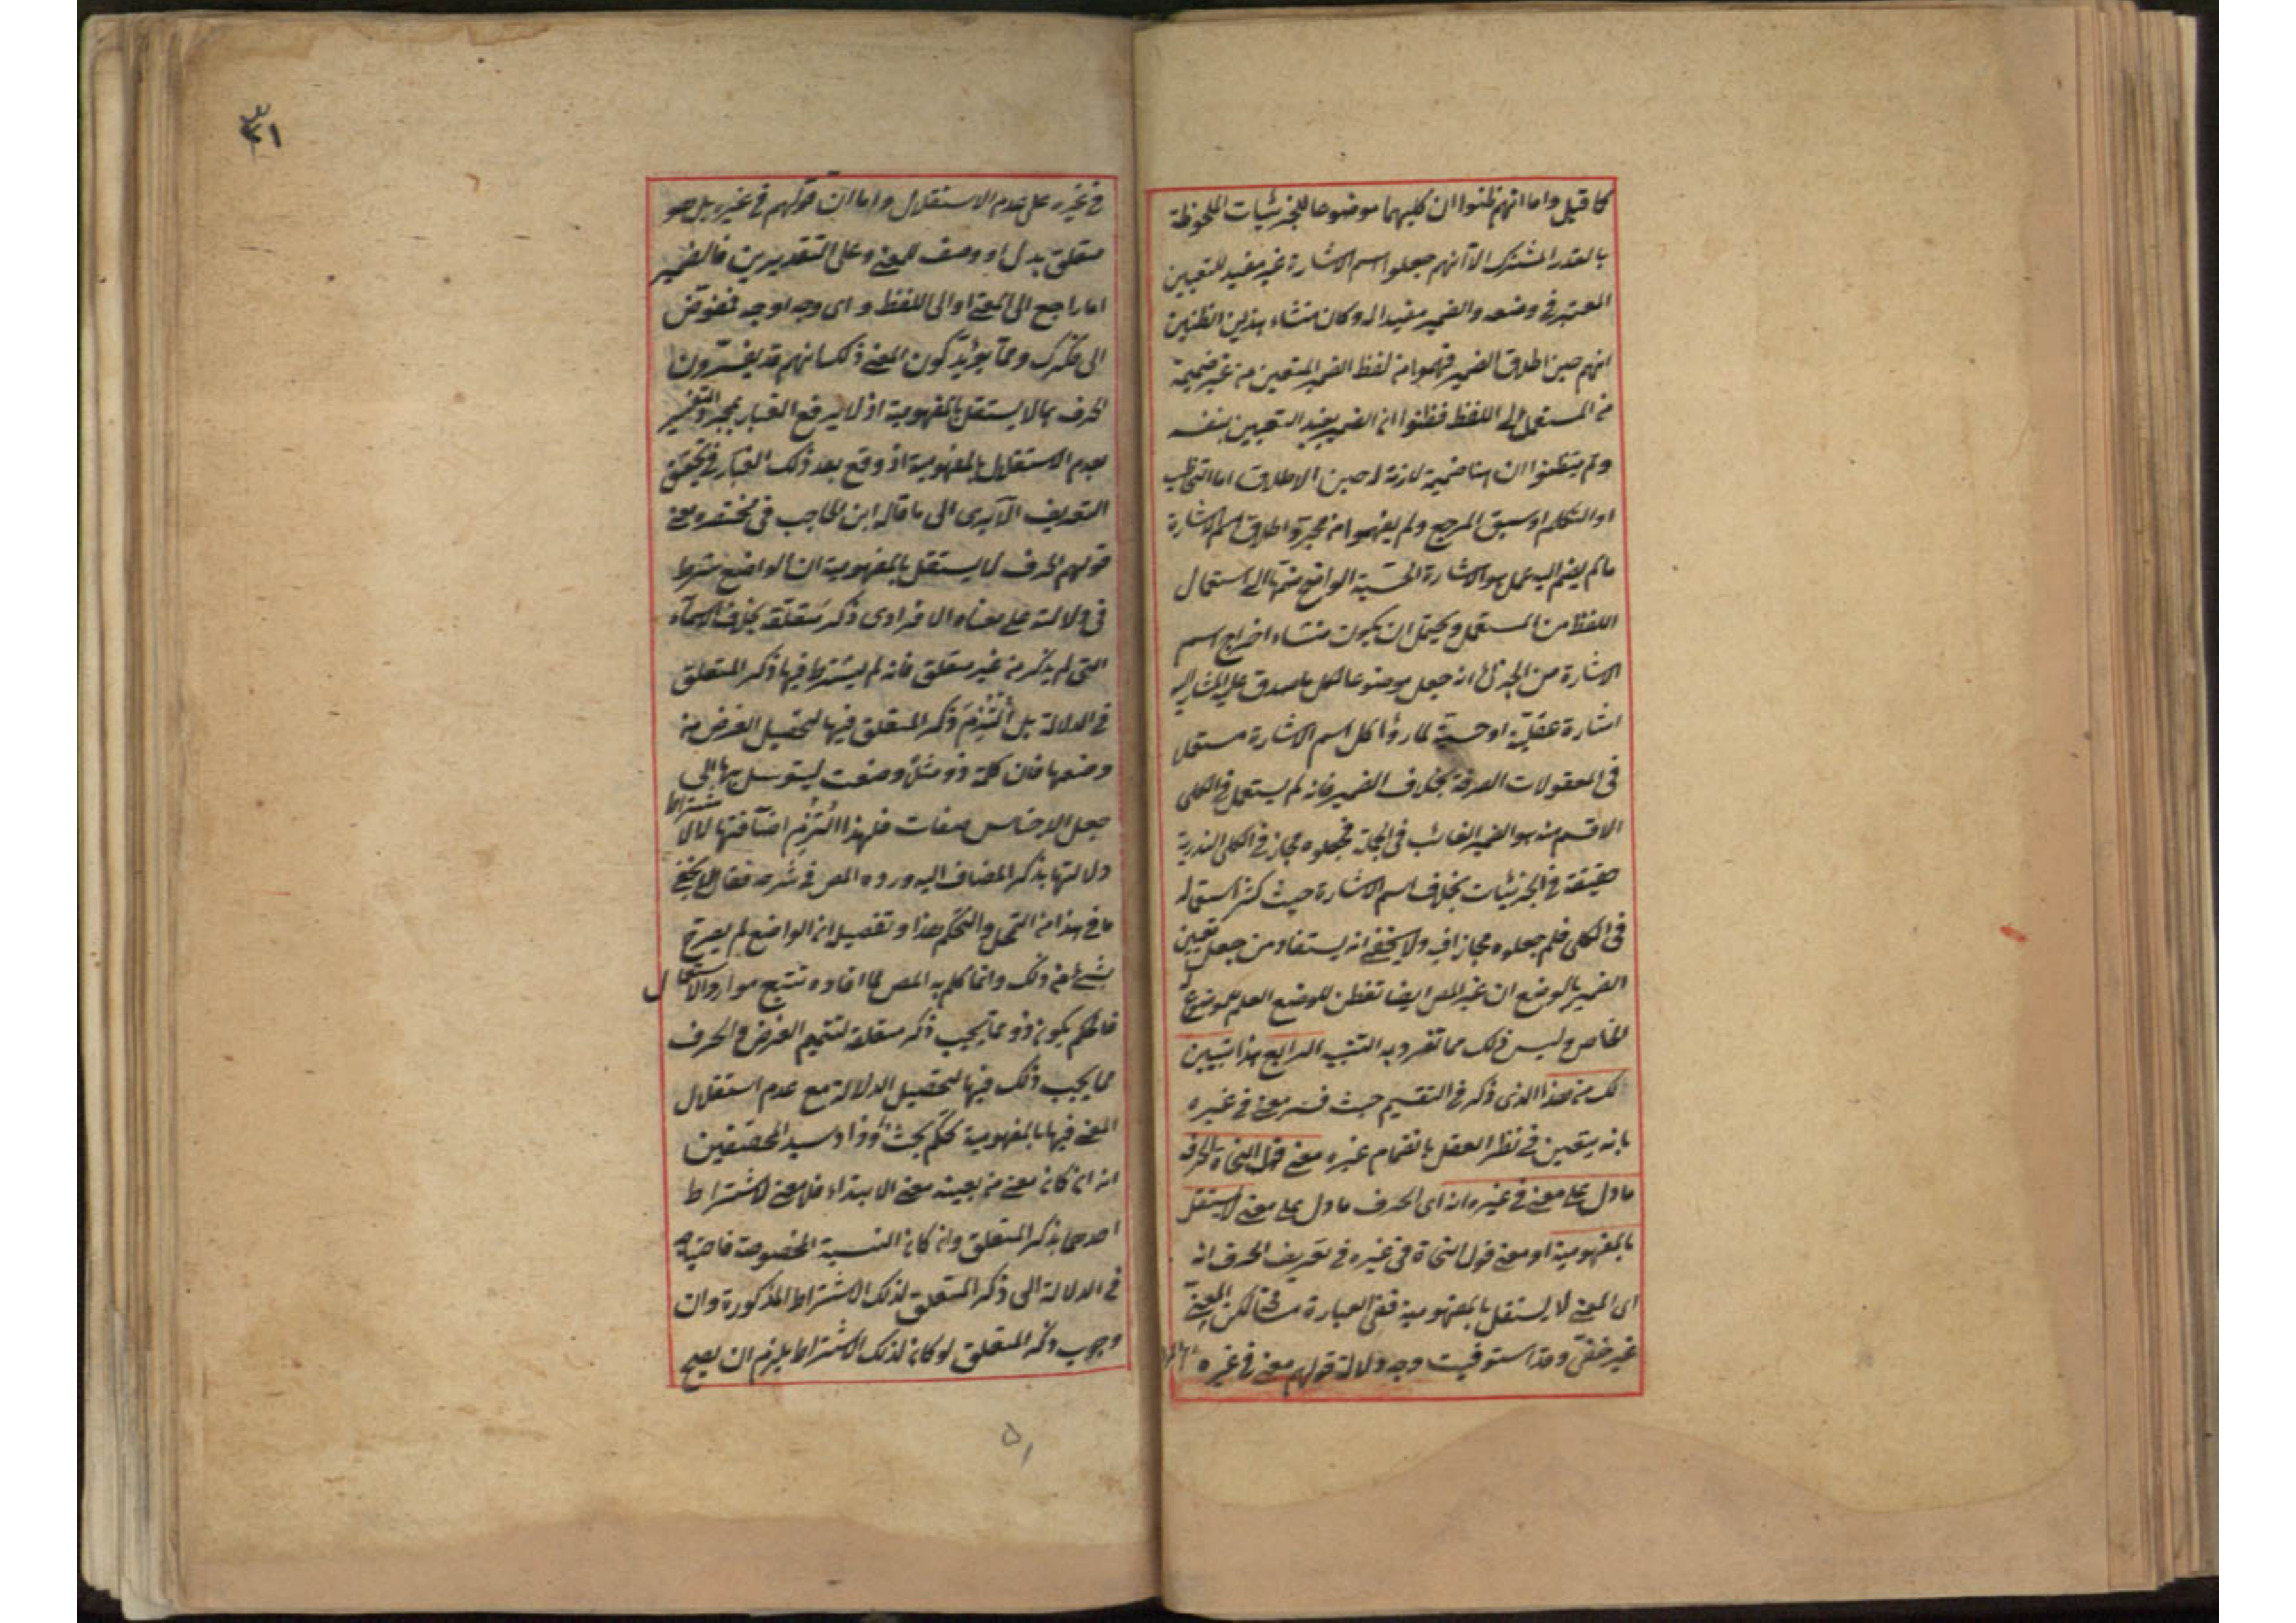 كما قيل واما انهم ظنوا ان كليهما موضوعا للجزئيات الملحوظة
بالقدر المشترك الا انهم جعلوا اسم الاشارة غير مفيد للتعيين
المعتبر في وضعه والضمير مفيدا له وكان منشاء هذين الظنين
انهم حين اطلاق الضمير فهموا من لفظ الضمير المتعين من غير ضميمة
من المستعمل الى اللفظ فظنوا ان الضمير يفيد التعيين بنفسه
ولم يتفطنوا ان هنا ضميمة لازمة له حين الاطلاق اما التخاطب
او التكلم او سبق المرجع ولم يفهموا من مجرد اطلاق اسم الاشارة
ما لم يضم اليه عمل هو الاشارة الحسية الواضع ضمها الى استعمال
اللفظ من المستعمل ويحتمل ان يكون منشاء اخراج اسم
الاشارة من الجزئي انه جعل موضوعا لكل ما صدق عليه المشار اليه
اشارة عقلية او حسية لما رؤا كل اسم الاشارة مستعمل
في المعقولات الصرفة بخلاف الضمير فانه لم يستعمل في الكلي
الا قسم منه هو الضمير الغائب في الجملة فجعلوه مجاز في الكلي لندرته
حقيقة في الجزئيات بخلاف اسم الاشارة حيث كثر استعماله
في الكلي فلم جعلوه مجازا فيه ولا يخفى انه يستفاد من جعل تعيين
الضمير بالوضع ان غير المص ايضا تفطن للوضع العام للموضوع له
الخاص وليس ذلك مما تفرد به التنبيه الرابع هذا تبيين
لك من هذا الذي ذكر في التقسيم حيث فسر معنى في غيره
بانه يتعين في نظر العقل بانضمام غيره معنى قول النحاة الحرف
ما دل على معنى في غيره انه اى الحرف ما دل على معنى لا يستقل
بالمفهومية او معنى قول النحاة في غيره في تعريف الحرف انه
اى المعنى لا يستقل بالمفهومية ففي العبارة مسامحة لكن المعنى
غير خفي وقد استوفيت وجه دلالة قولهم معنى في غيره
٣١
في غيره على عدم الاستقلال واما ان قولهم في غيره بل هو
متعلق بدل او وصف للمعنى وعلى التقديرين فالضمير
اما راجع الى المعنى او الى اللفظ و اى وجه اوجه فمفوض
الى فكرك ومما يؤيد كون المعنى ذلك انهم قد يفسرون
الحرف بما لا يستقل بالمفهومية اذ لا يرفع الغبار بمجرد التفسير
بعدم الاستقلال بالمفهومية اذ وقع بعد ذلك الغبار في تحقيق
التعريف الا يرى الى ما قاله ابن الحاجب في مختصره معنى
قولهم الحرف لا يستقل بالمفهومية ان الواضع شرط
في دلالته على معناه الافرادى ذكر متعلقه بخلاف الاسماء
التي لم يذكر من غير متعلق فانه لم يشترط فيها ذكر المتعلق
في الدلالة بل التزم ذكر المتعلق فيها لتحصيل الغرض من
وضعها فان كلمة ذو مثلا وضعت ليتوسل بها الى
جعل الاجناس صفات فلهذا التزم اضافتها لا لاشتراط
دلالتها بذكر المضاف اليه ورده المص في شرحه فقال لا يخفى
ما في هذا من التمحل والتحكم هذا و تفصيله ان الواضع لم يصرح
بشيء من ذلك وانما كلم به المص لما افاده تتبع موارد الاستعمال
فالحكم بكون ذو مما يجب ذكر متعلقه لتتميم الغرض والحرف
مما يجب ذلك فيها لتحصيل الدلالة مع عدم استقلال
المعنى فيها بالمفهومية تحكم بحث وزاد سيد المحققين
انه ان كان معنى من بعينه معنى الابتداء فلا معنى لاشتراط
احدهما بذكر المتعلق وان كان النسبة المخصوصة فاحتياجه
في الدلالة الى ذكر المتعلق لذلك الاشتراط المذكورة وان
وجوب ذكر المتعلق لو كان لذلك الاشتراط يلزم ان يصح
۵۱